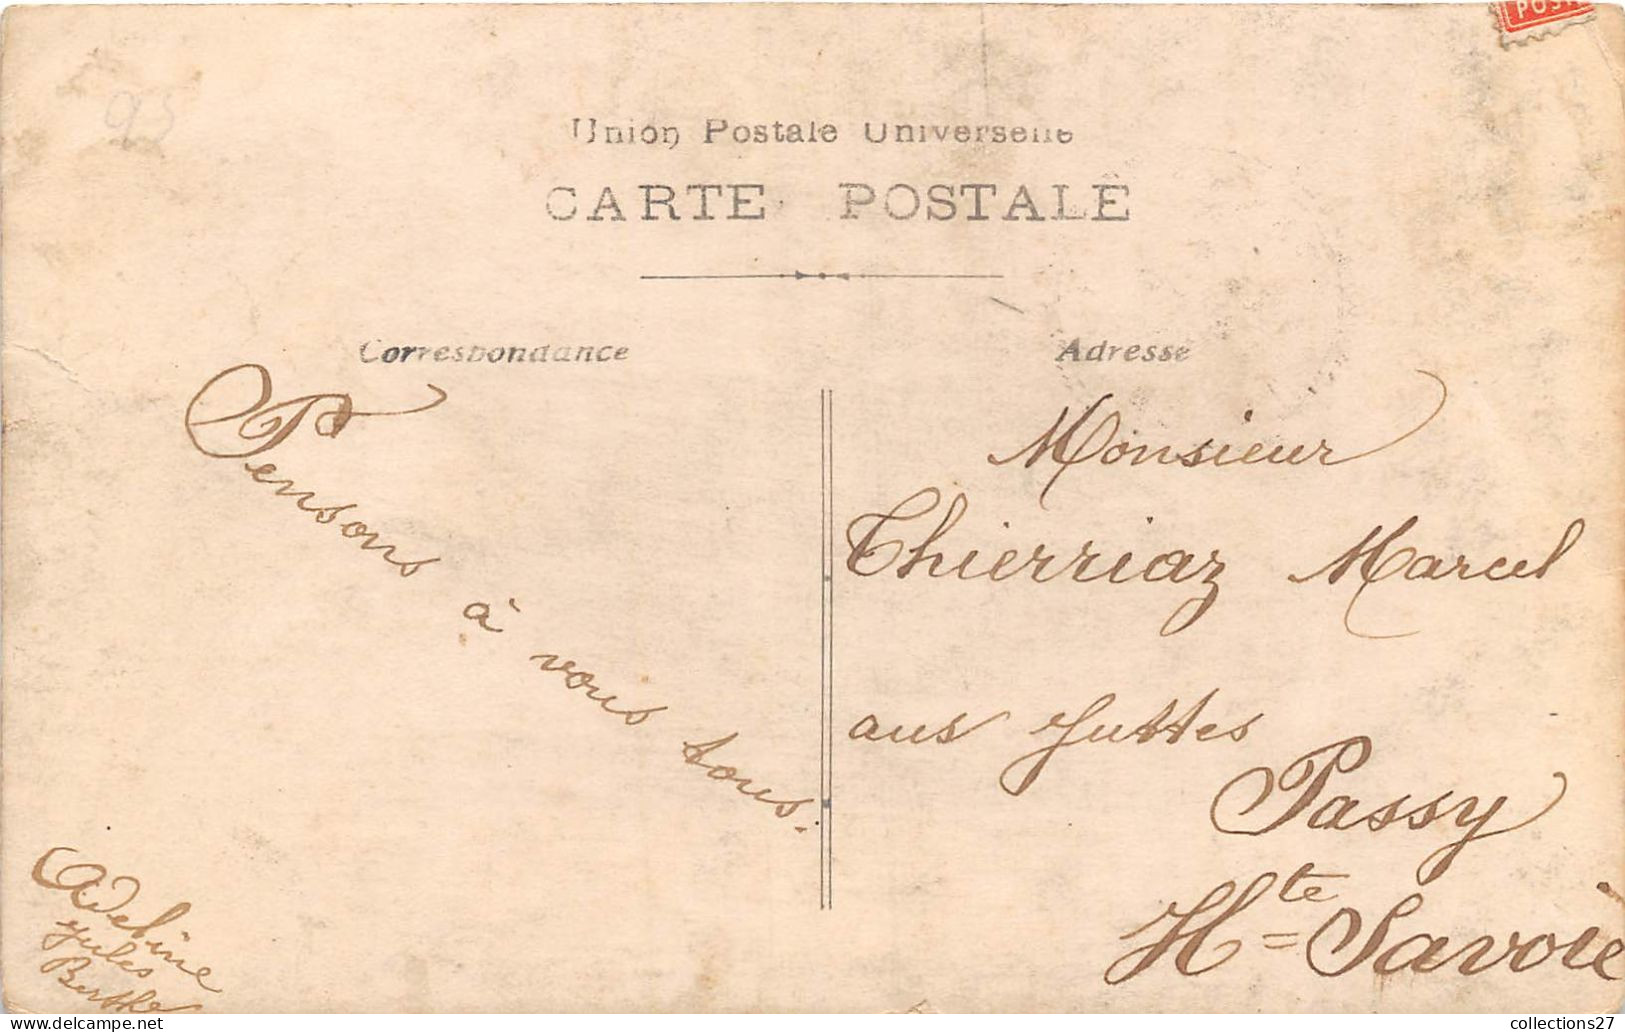 POST
93
Union Postale Universelle
CARTE POSTALE
Correspondance
Adresse
Pensons
à
vous
tous.
Adeline
Jules
Berthe
Monsieur
Thierriaz Marcel
aux Juttes
Passy
Hte Savoie
collections27